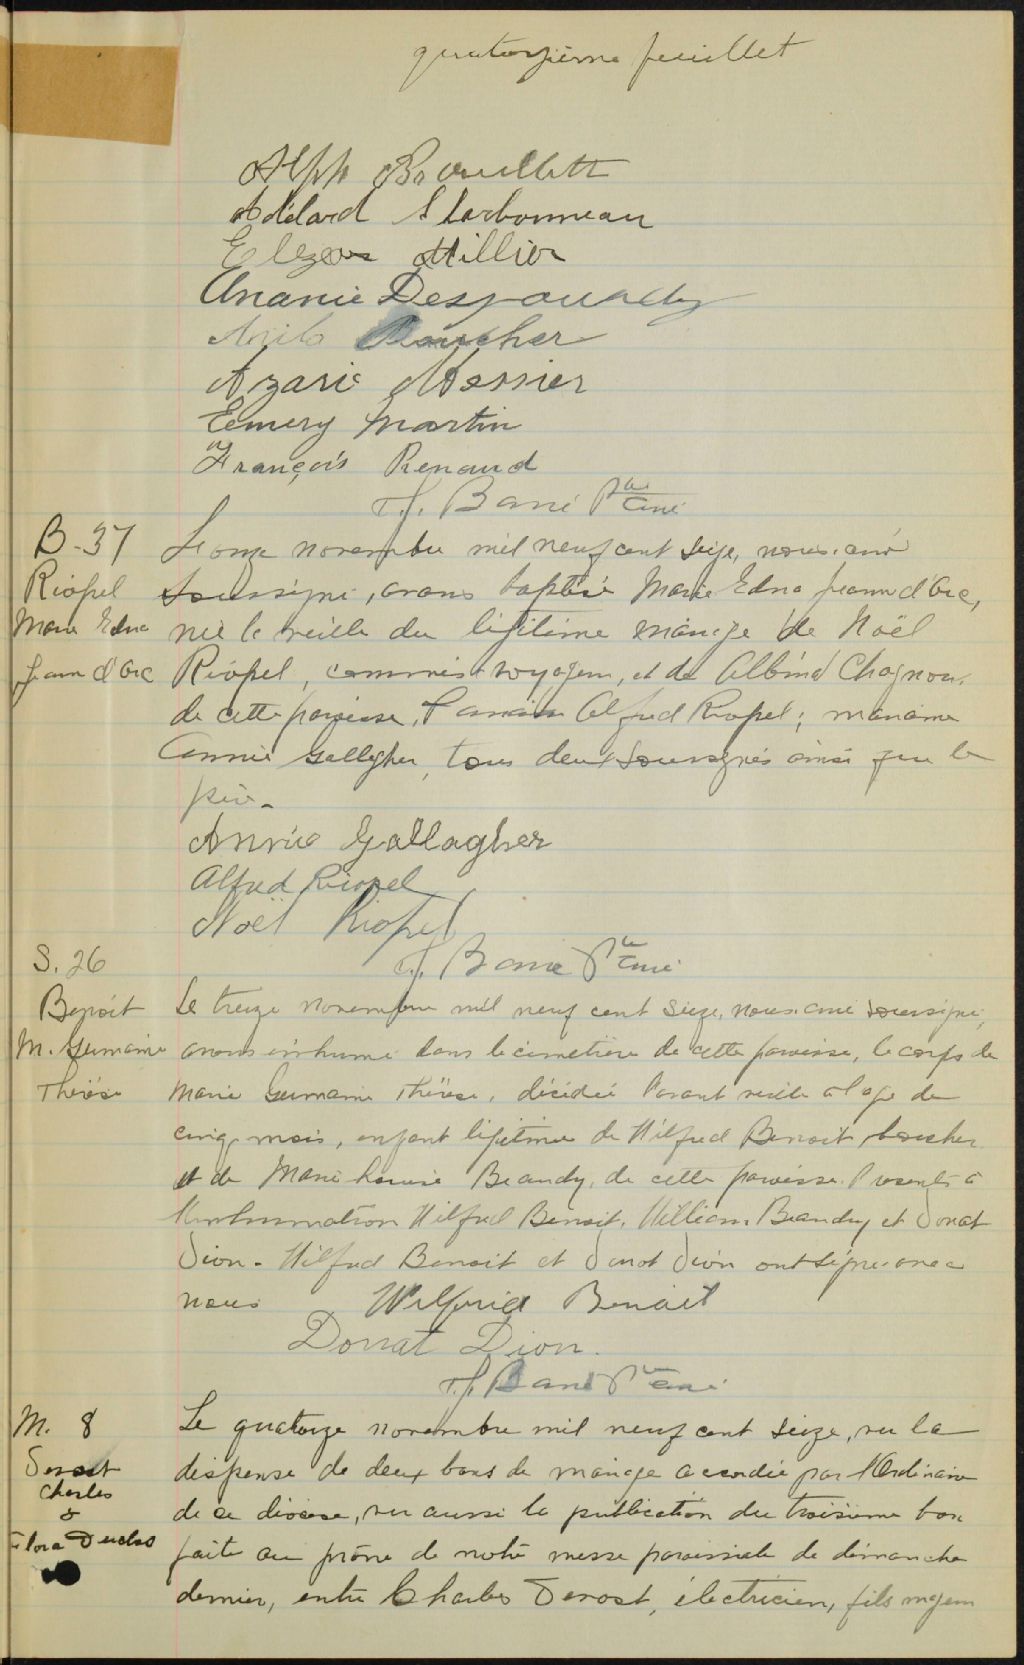 quatorzième feuillet
Alph Brouillett
Adélard Charbonneau
Elzear Hillier
Ananie Desp
Boucher
Azarie Messier
Emery Martin
François Renaud
J. Barré Ptre curé
B. 37
Riopel
Marie Edna
Jeanne d'Arc
Le onze novembre mil neuf cent seize, nous, curé
soussigné, avons baptisé Marie Edna Jeanne d'Arc,
née la veille du légitime mariage de Noël
Riopel, commis-voyageur, et de Albina Chagnon,
de cette paroisse. Parrain Alfred Riopel; marraine
Annie Gallagher, tous deux soussignés ainsi que le
père.
Annie Gallagher
Alfred Riopel
Noël Riopel
J. Barré Ptre curé
S. 26
Benoit
M. Germaine
Thérèse
Le treize novembre mil neuf cent seize, nous, curé soussigné,
avons inhumé dans le cimetière de cette paroisse, le corps de
Marie Germaine Thérèse, décédée l'avant veille à l'âge de
cinq mois, enfant légitime de Wilfred Benoit, boucher
et de Marie Louise Beaudry, de cette paroisse. Présents à
l'inhumation Wilfred Benoit, William Beaudry et Donat
Dion. Wilfred Benoit et Donat Dion ont signé avec
nous
Wilfrid Benoit
Donat Dion.
J. Barré Ptre curé
M. 8
Charles
&
Flora Duclos
Le quatorze novembre mil neuf cent seize, vu la
dispense de deux bans de mariage accordée par l'Ordinaire
de ce diocèse, vu aussi la publication du troisième ban
faite au prône de notre messe paroissiale de dimanche
dernier, entre Charles électricien, fils majeur